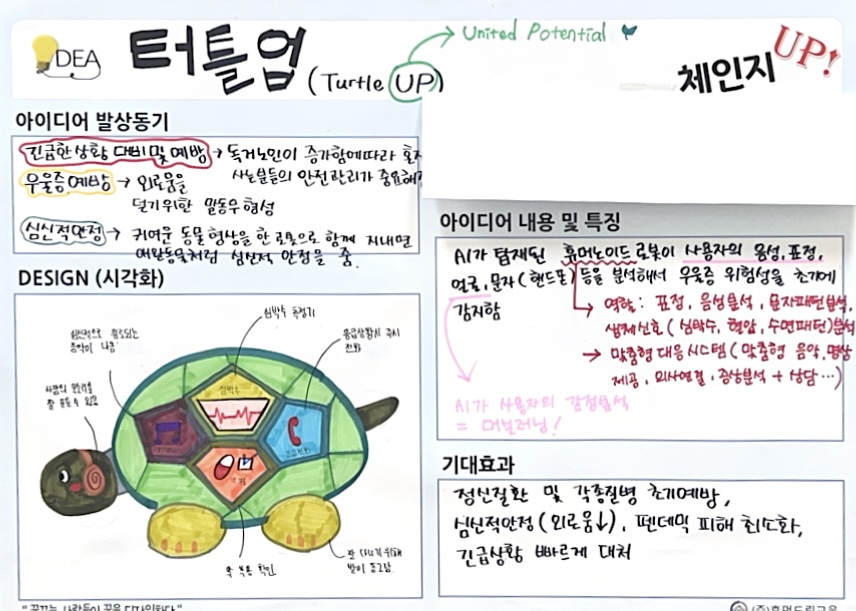 IDEA
터틀업 (Turtle UP)
United Potential
체인지 UP!
아이디어 발상동기
긴급한 상황 대비 및 예방 → 독거노인이 증가함에따라 혼자
사는분들의 안전관리가 중요해
우울증예방 → 외로움을
덜기위한 말동무 형성
심신적안정 → 귀여운 동물 형상을 한 로봇으로 함께 지내면
애완동물처럼 심신적 안정을 줌.
DESIGN (시각화)
심박수 측정기
응급상황시 즉시
전화
심신적으로
음악이 나옴
사람의 말소리를
잘 들을 수 있음
심박수
약 복용 확인
잘 다니기 위해
발이 동그람
아이디어 내용 및 특징
AI가 탑재된 휴머노이드 로봇이 사용자의 음성, 표정,
얼굴, 문자(핸드폰) 등을 분석해서 우울증 위험성을 초기에
감지함
→ 역할 : 표정, 음성분석, 문자패턴분석,
생체신호 (심박수, 혈압, 수면패턴) 분석
→ 맞춤형 대응시스템 (맞춤형 음악, 영상
제공, 의사연결, 증상분석 + 상담…)
AI가 사용자의 감정분석
= 머신러닝!
기대효과
정신질환 및 각종질병 초기예방,
심신적안정 (외로움↓), 펜데믹 피해 최소화,
긴급상황 빠르게 대처
"꿈꾸는 사람들이 꿈을 디자인한다"
(주)휴먼드림교육